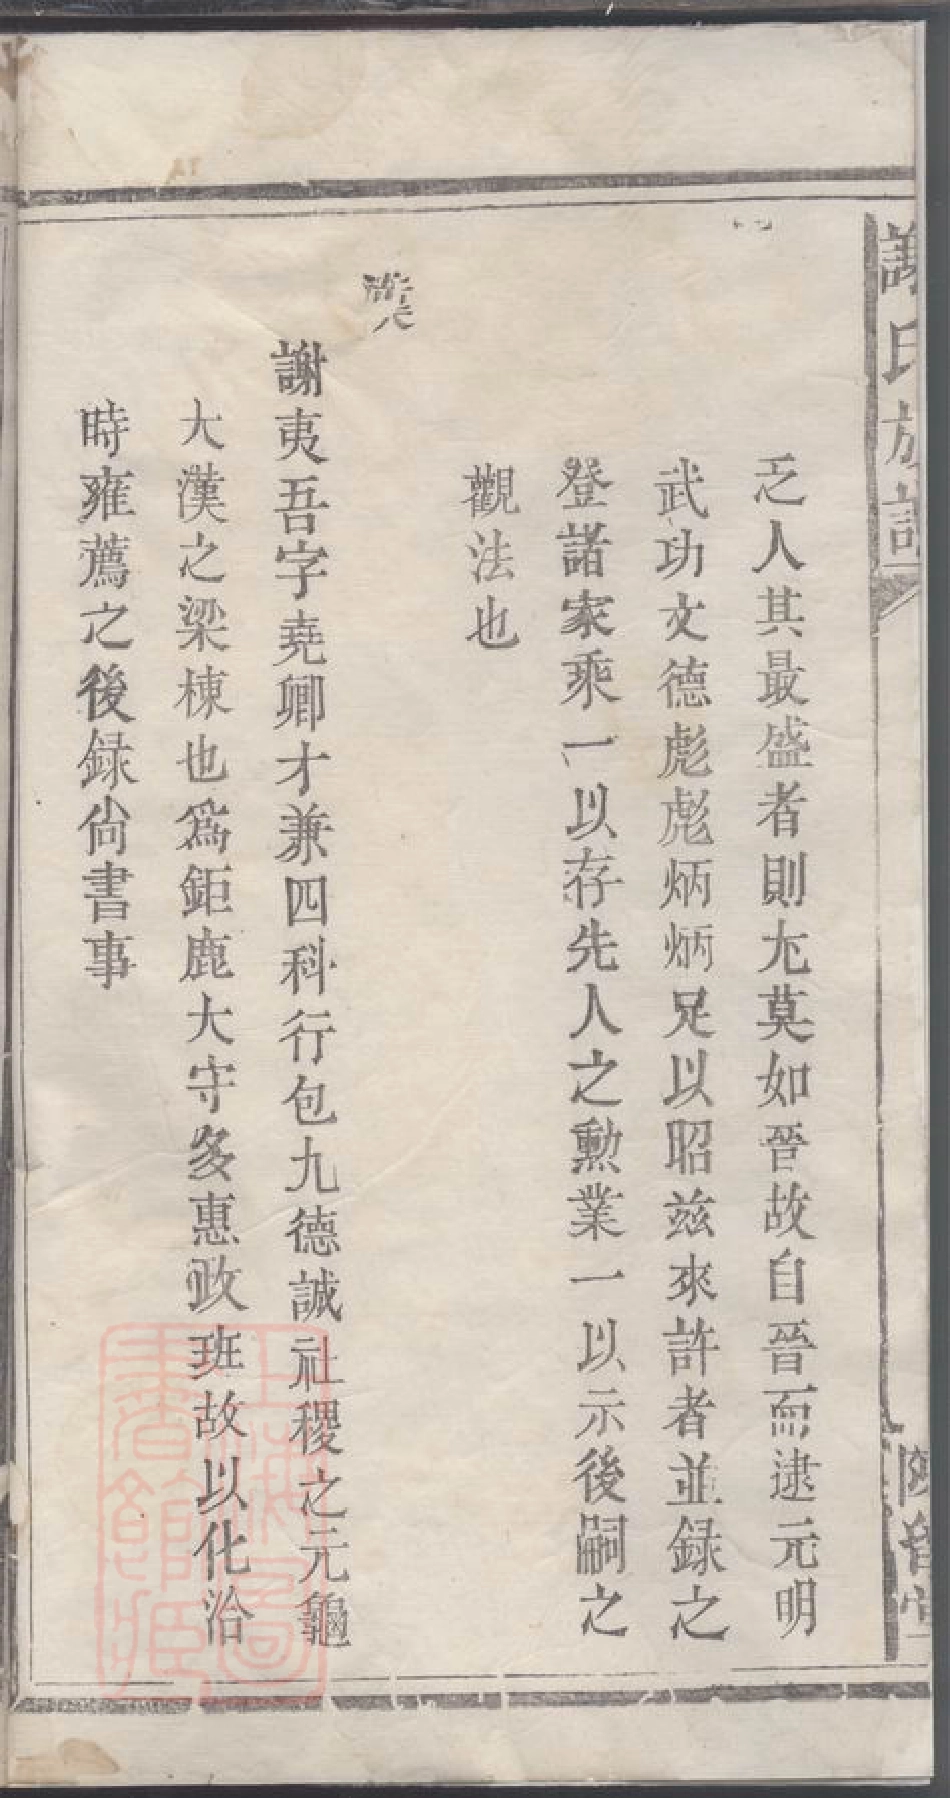 謝氏族譜
乏人其最盛者則尤莫如晉故自晉而逮元明
武功文德彪彪炳炳足以昭兹來許者並録之
登諸家乘一以存先人之勲業一以示後嗣之
觀法也
漢
謝夷吾字堯卿才兼四科行包九德誠社稷之元龜
大漢之梁棟也為鉅鹿大守多惠政班故以化洽
時雍薦之後録尙書事
上海圖書館藏